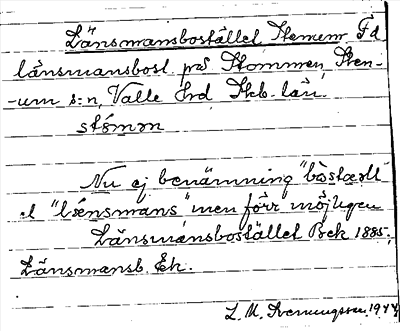 Länsmansbostället Stemenr Fd
länsmansbost. på Stommen, Sten-
-um s:n, Valle Hrd, Skb. län.
stómən
Nu ej benämning "bòstælt"
el "lɛ́nsmans" men förr möjligen
Länsmansbostället Bek 1885;
Länsmansb. Ek.
L. M. Svenningsson 1944